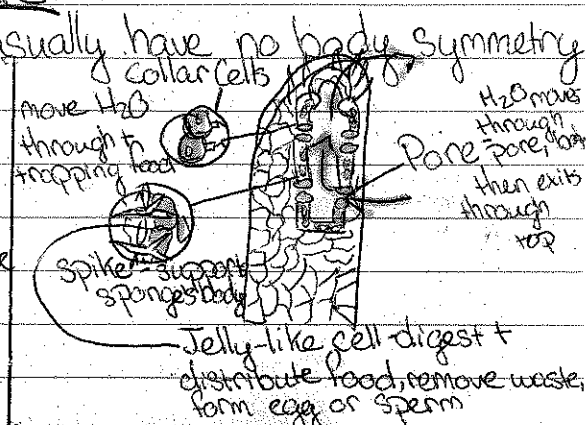 usually have no body symmetry
collar cells
move H₂O
through +
trapping food
H₂O moves
through
Pore - pore, body
then exits
through
top
spike - support
sponges body
Jelly-like cell - digest +
distribute food, remove waste,
form egg or sperm